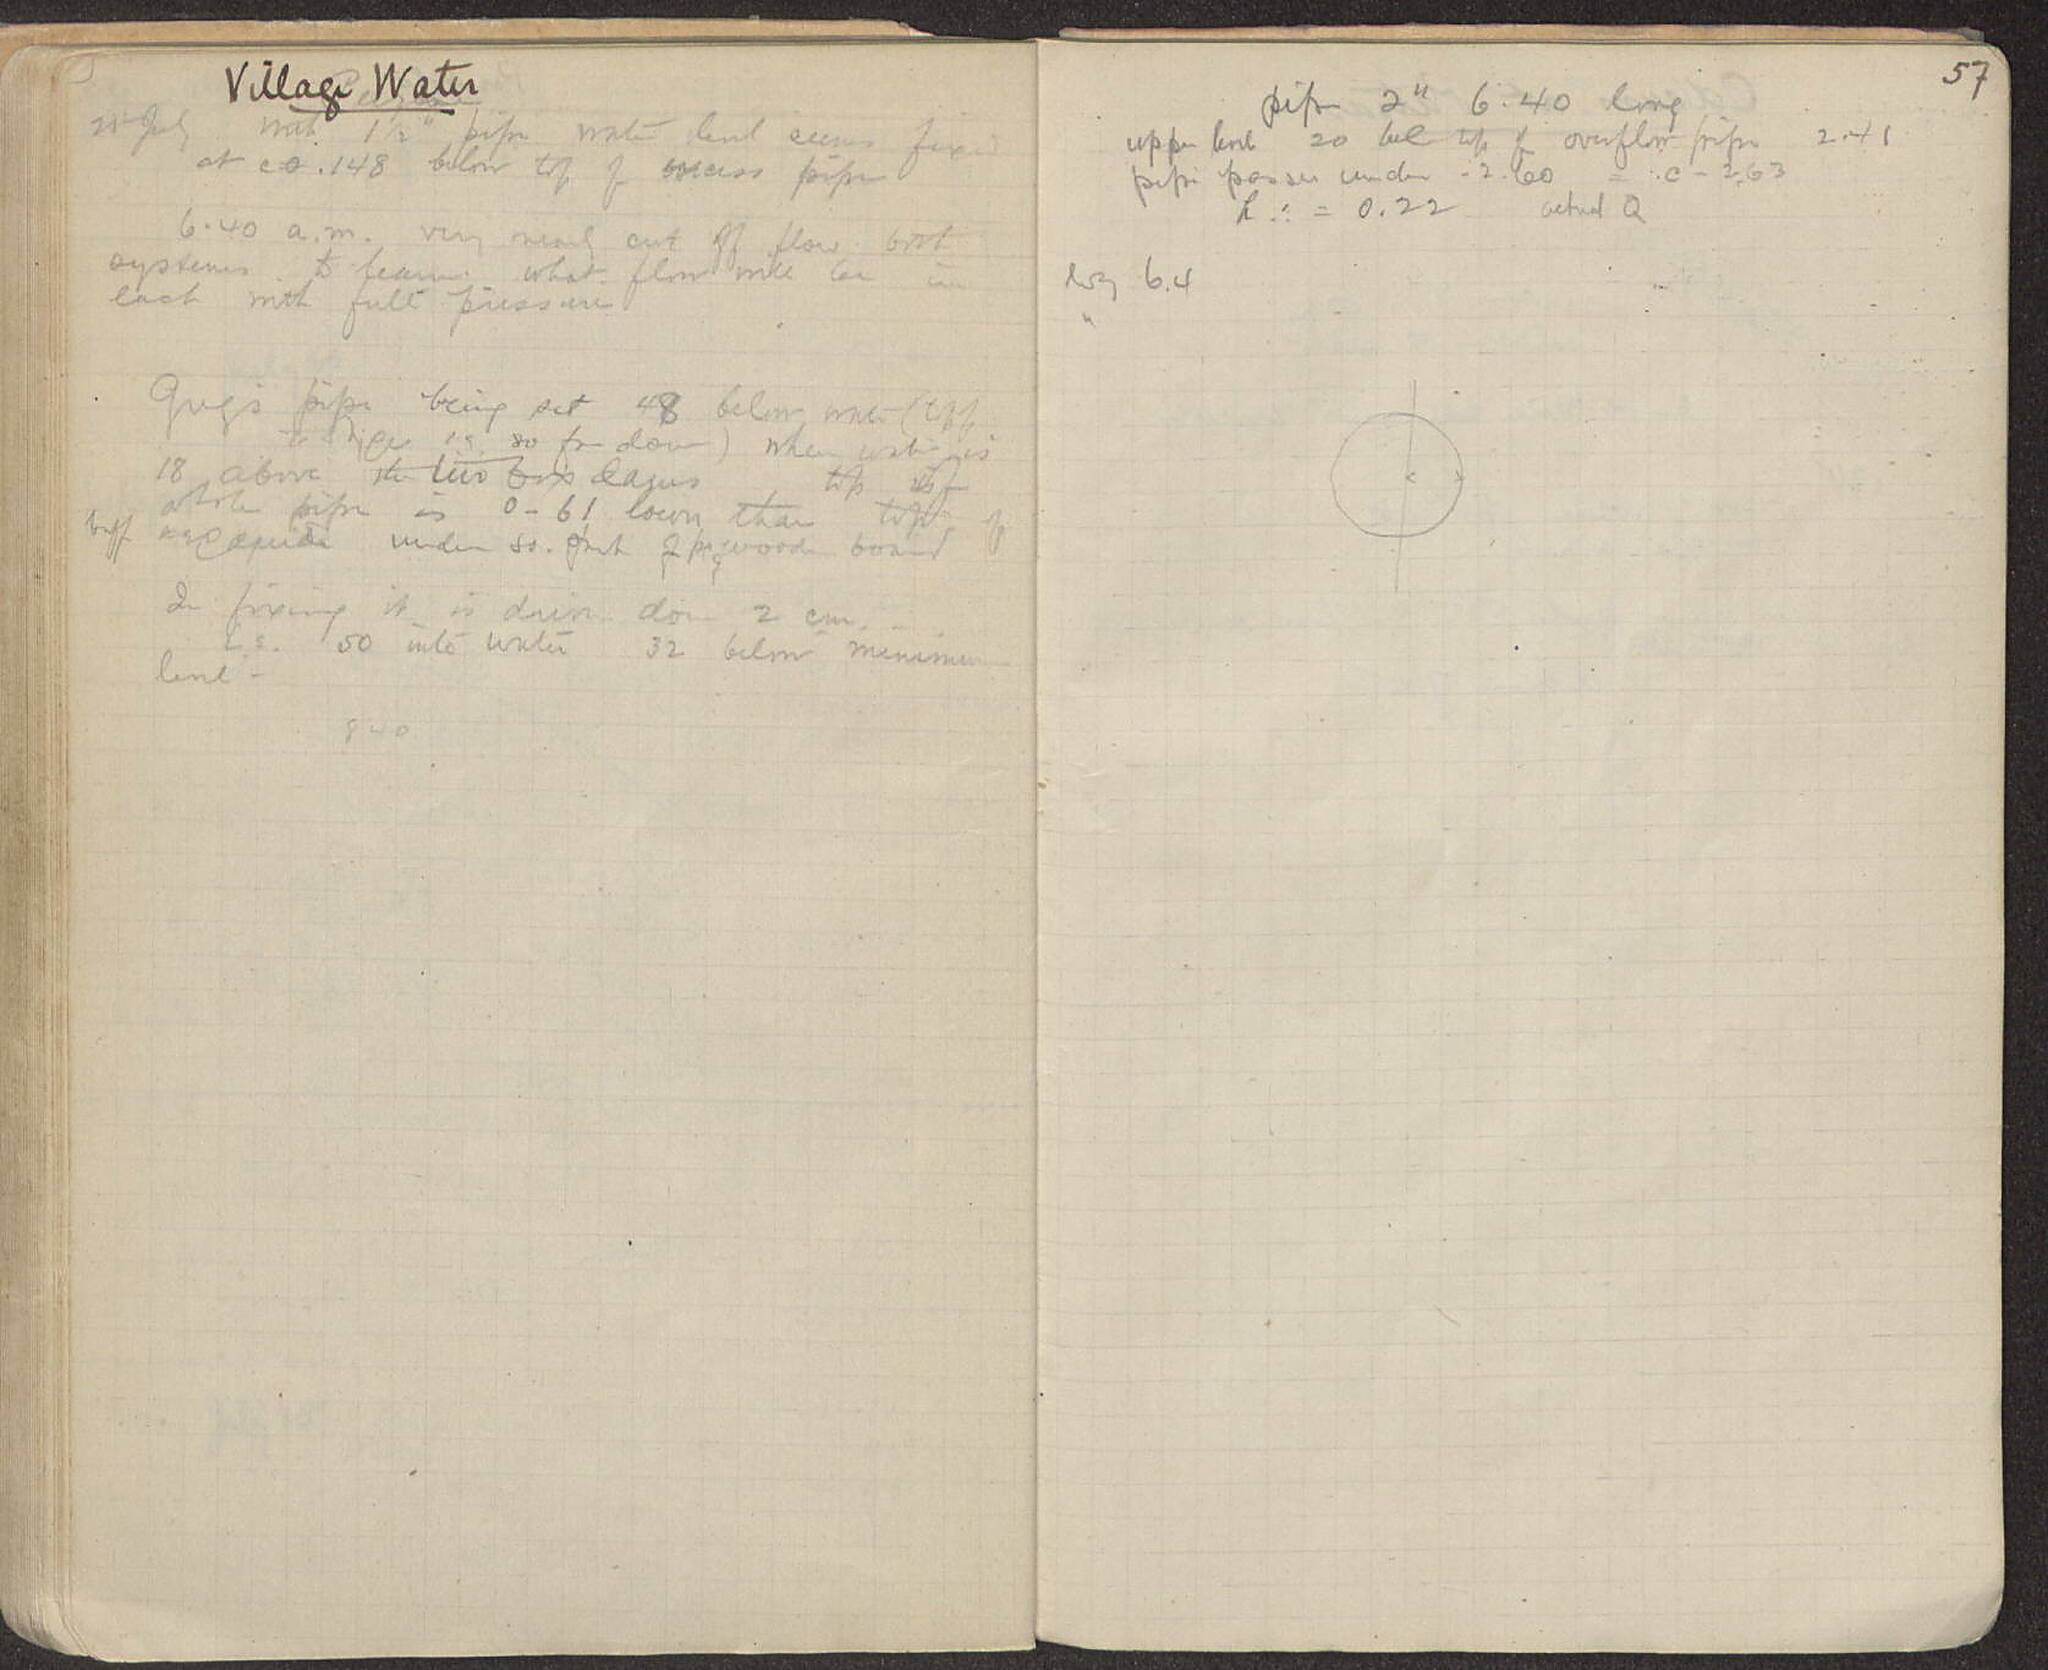 Village Water
21 July with 1½" pipe water level seems fixed
at ca .148 below top of access pipe
6.40 a.m. very nearly cut off flow both
systems to learn what flow will be in
each with full pressure
Greg's pipe being set 48 below water (
is so far down) when water is
18 above the two box lagus top of
whole pipe is 0-61 lower than top of
under so. part of wooden board
In fixing it is driven down 2 cm.
i.e. 50 into water 32 below minimum
level -
840
57
pipe 2" 6.40 long
upper level 20 bel top of overflow pipe 2.41
pipe passes under -2.60 = .c - 2.63
h ∴ = 0.22 actual Q
log 6.4
"